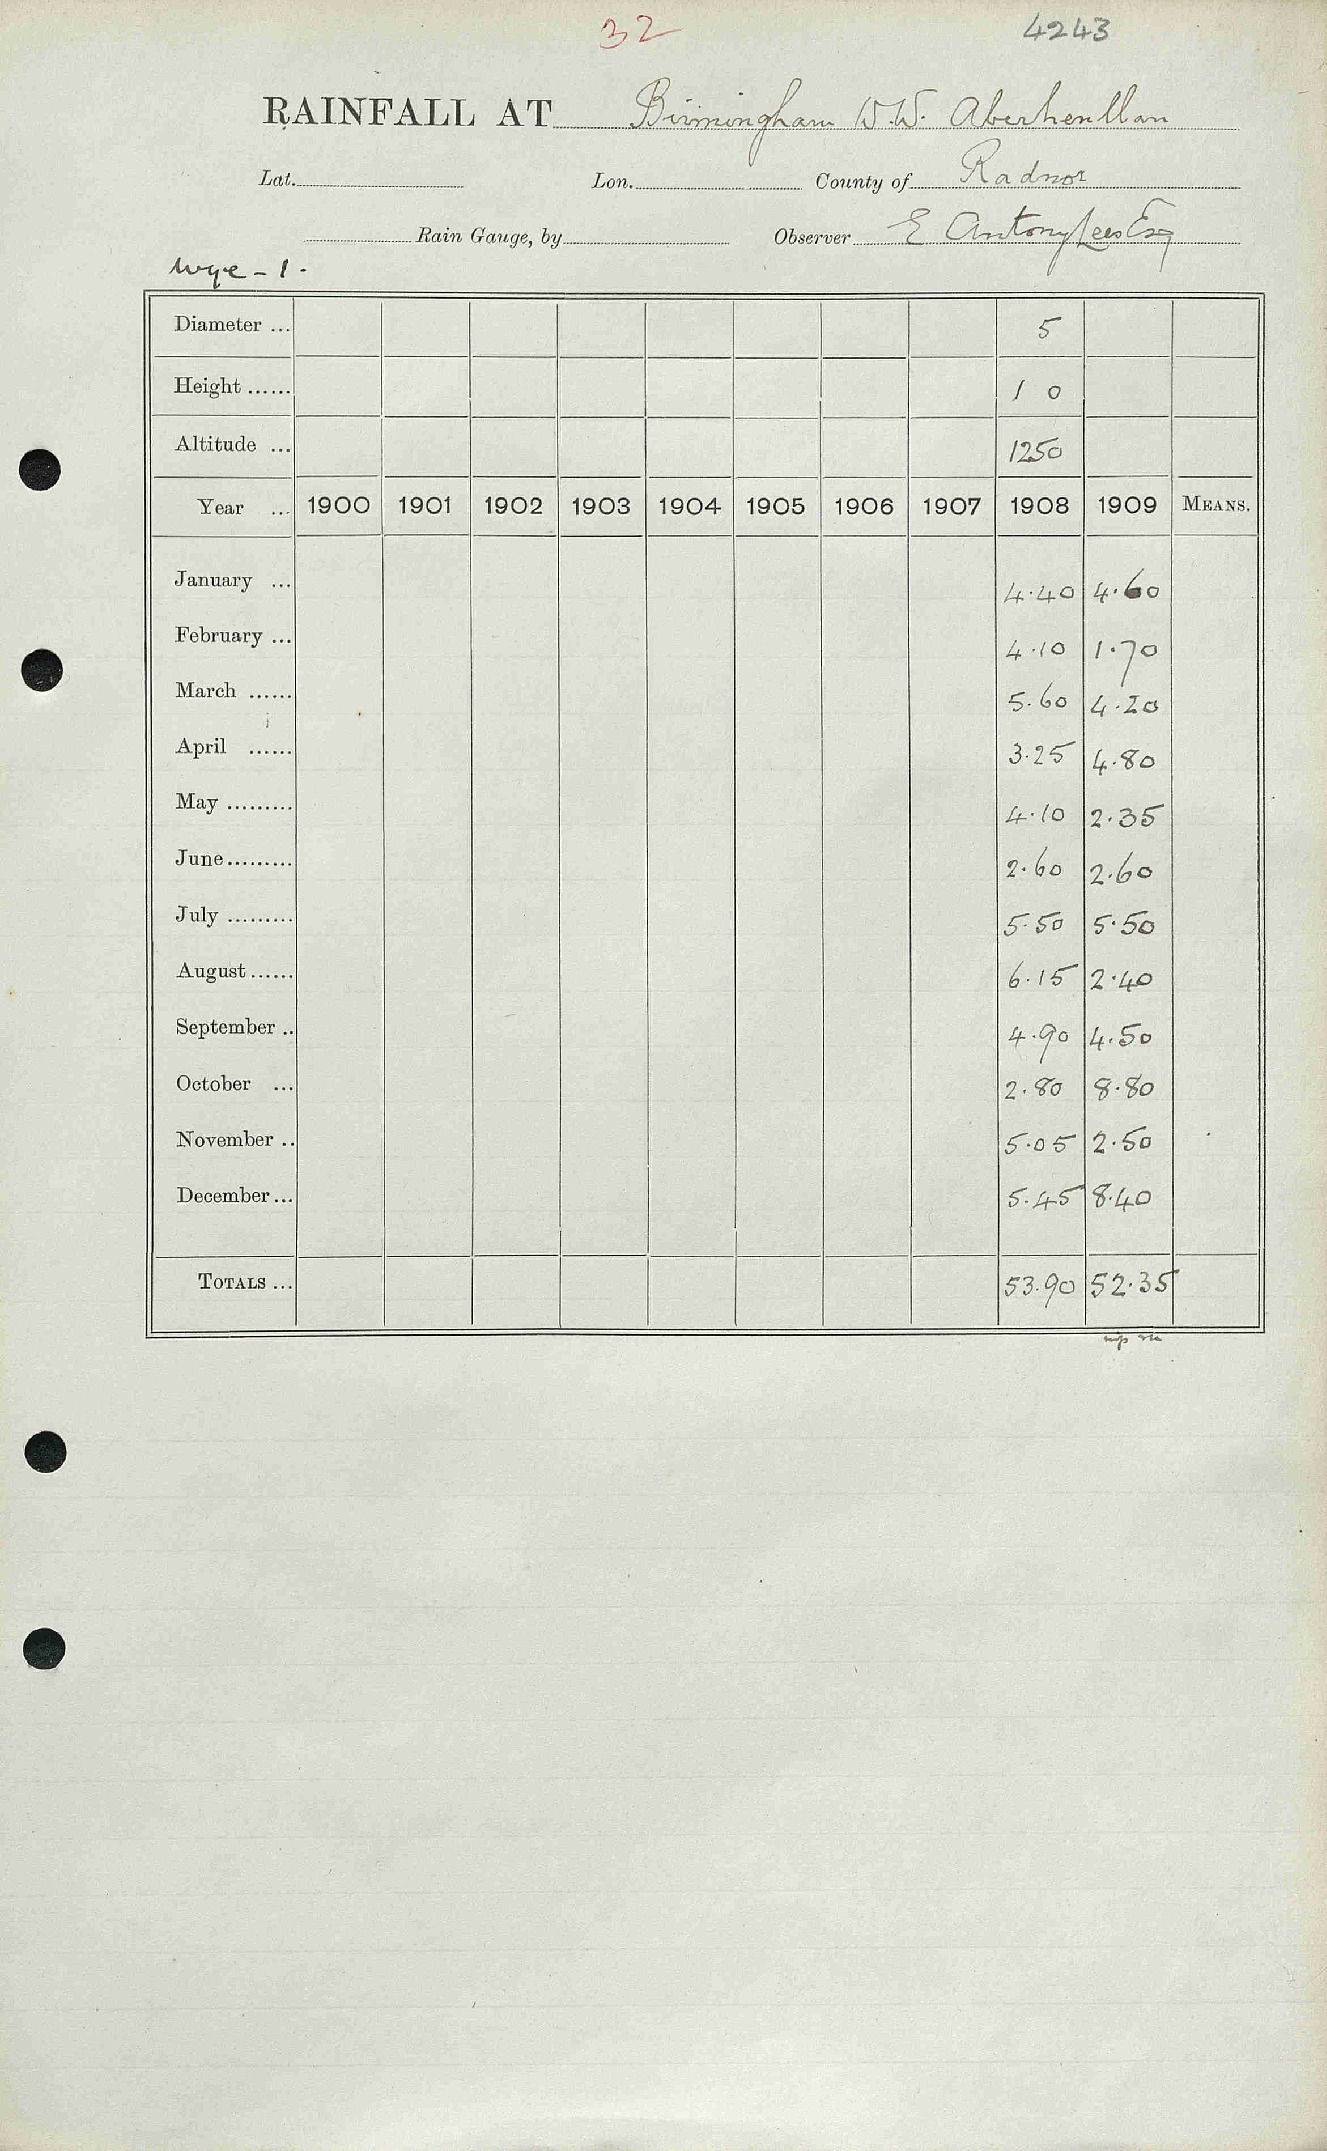 32
4243
RAINFALL AT Birmingham W.W. Aberhenllan
Lat. Lon. County of Radnor
Rain Gauge, by Observer E Antony Lees Esq
Wye - 1.
Diameter ... 5
Height ...... 1 0
Altitude ... 1250
Year ... 1900 1901 1902 1903 1904 1905 1906 1907 1908 1909 MEANS.
January ... 4.40 4.60
February ... 4.10 1.70
March ...... 5.60 4.20
April ...... 3.25 4.80
May ......... 4.10 2.35
June ......... 2.60 2.60
July ......... 5.50 5.50
August ...... 6.15 2.40
September .. 4.90 4.50
October ... 2.80 8.80
November .. 5.05 2.50
December ... 5.45 8.40
TOTALS ... 53.90 52.35